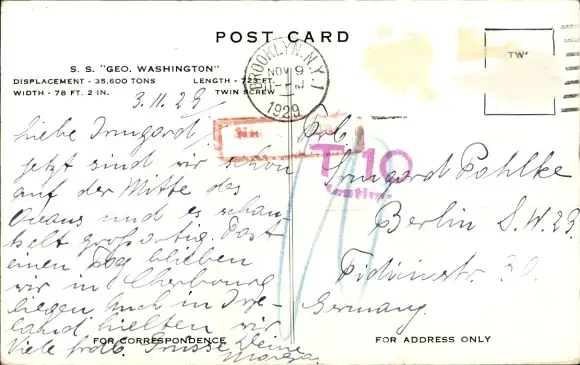 POST CARD
S. S. "GEO. WASHINGTON"
DISPLACEMENT - 35,600 TONS LENGTH - 723 FT.
WIDTH - 78 FT. 2 IN. TWIN SCREW
BROOKLYN, N.Y. 1
NOV 9
1929
TW
T 10
3.11.29
Liebe Irmgard,
jetzt sind wir schon
auf der Mitte des
Ozeans und es schau-
kelt großartig. Fast
einen Tag blieben
wir in Cherbourg
liegen. Auch in Irr-
land hielten wir
Viele Grüsse Deine
Frl.
Irmgard Pohlke
Berlin S.W. 29.
Fidicinstr. 30.
Germany.
FOR CORRESPONDENCE
FOR ADDRESS ONLY